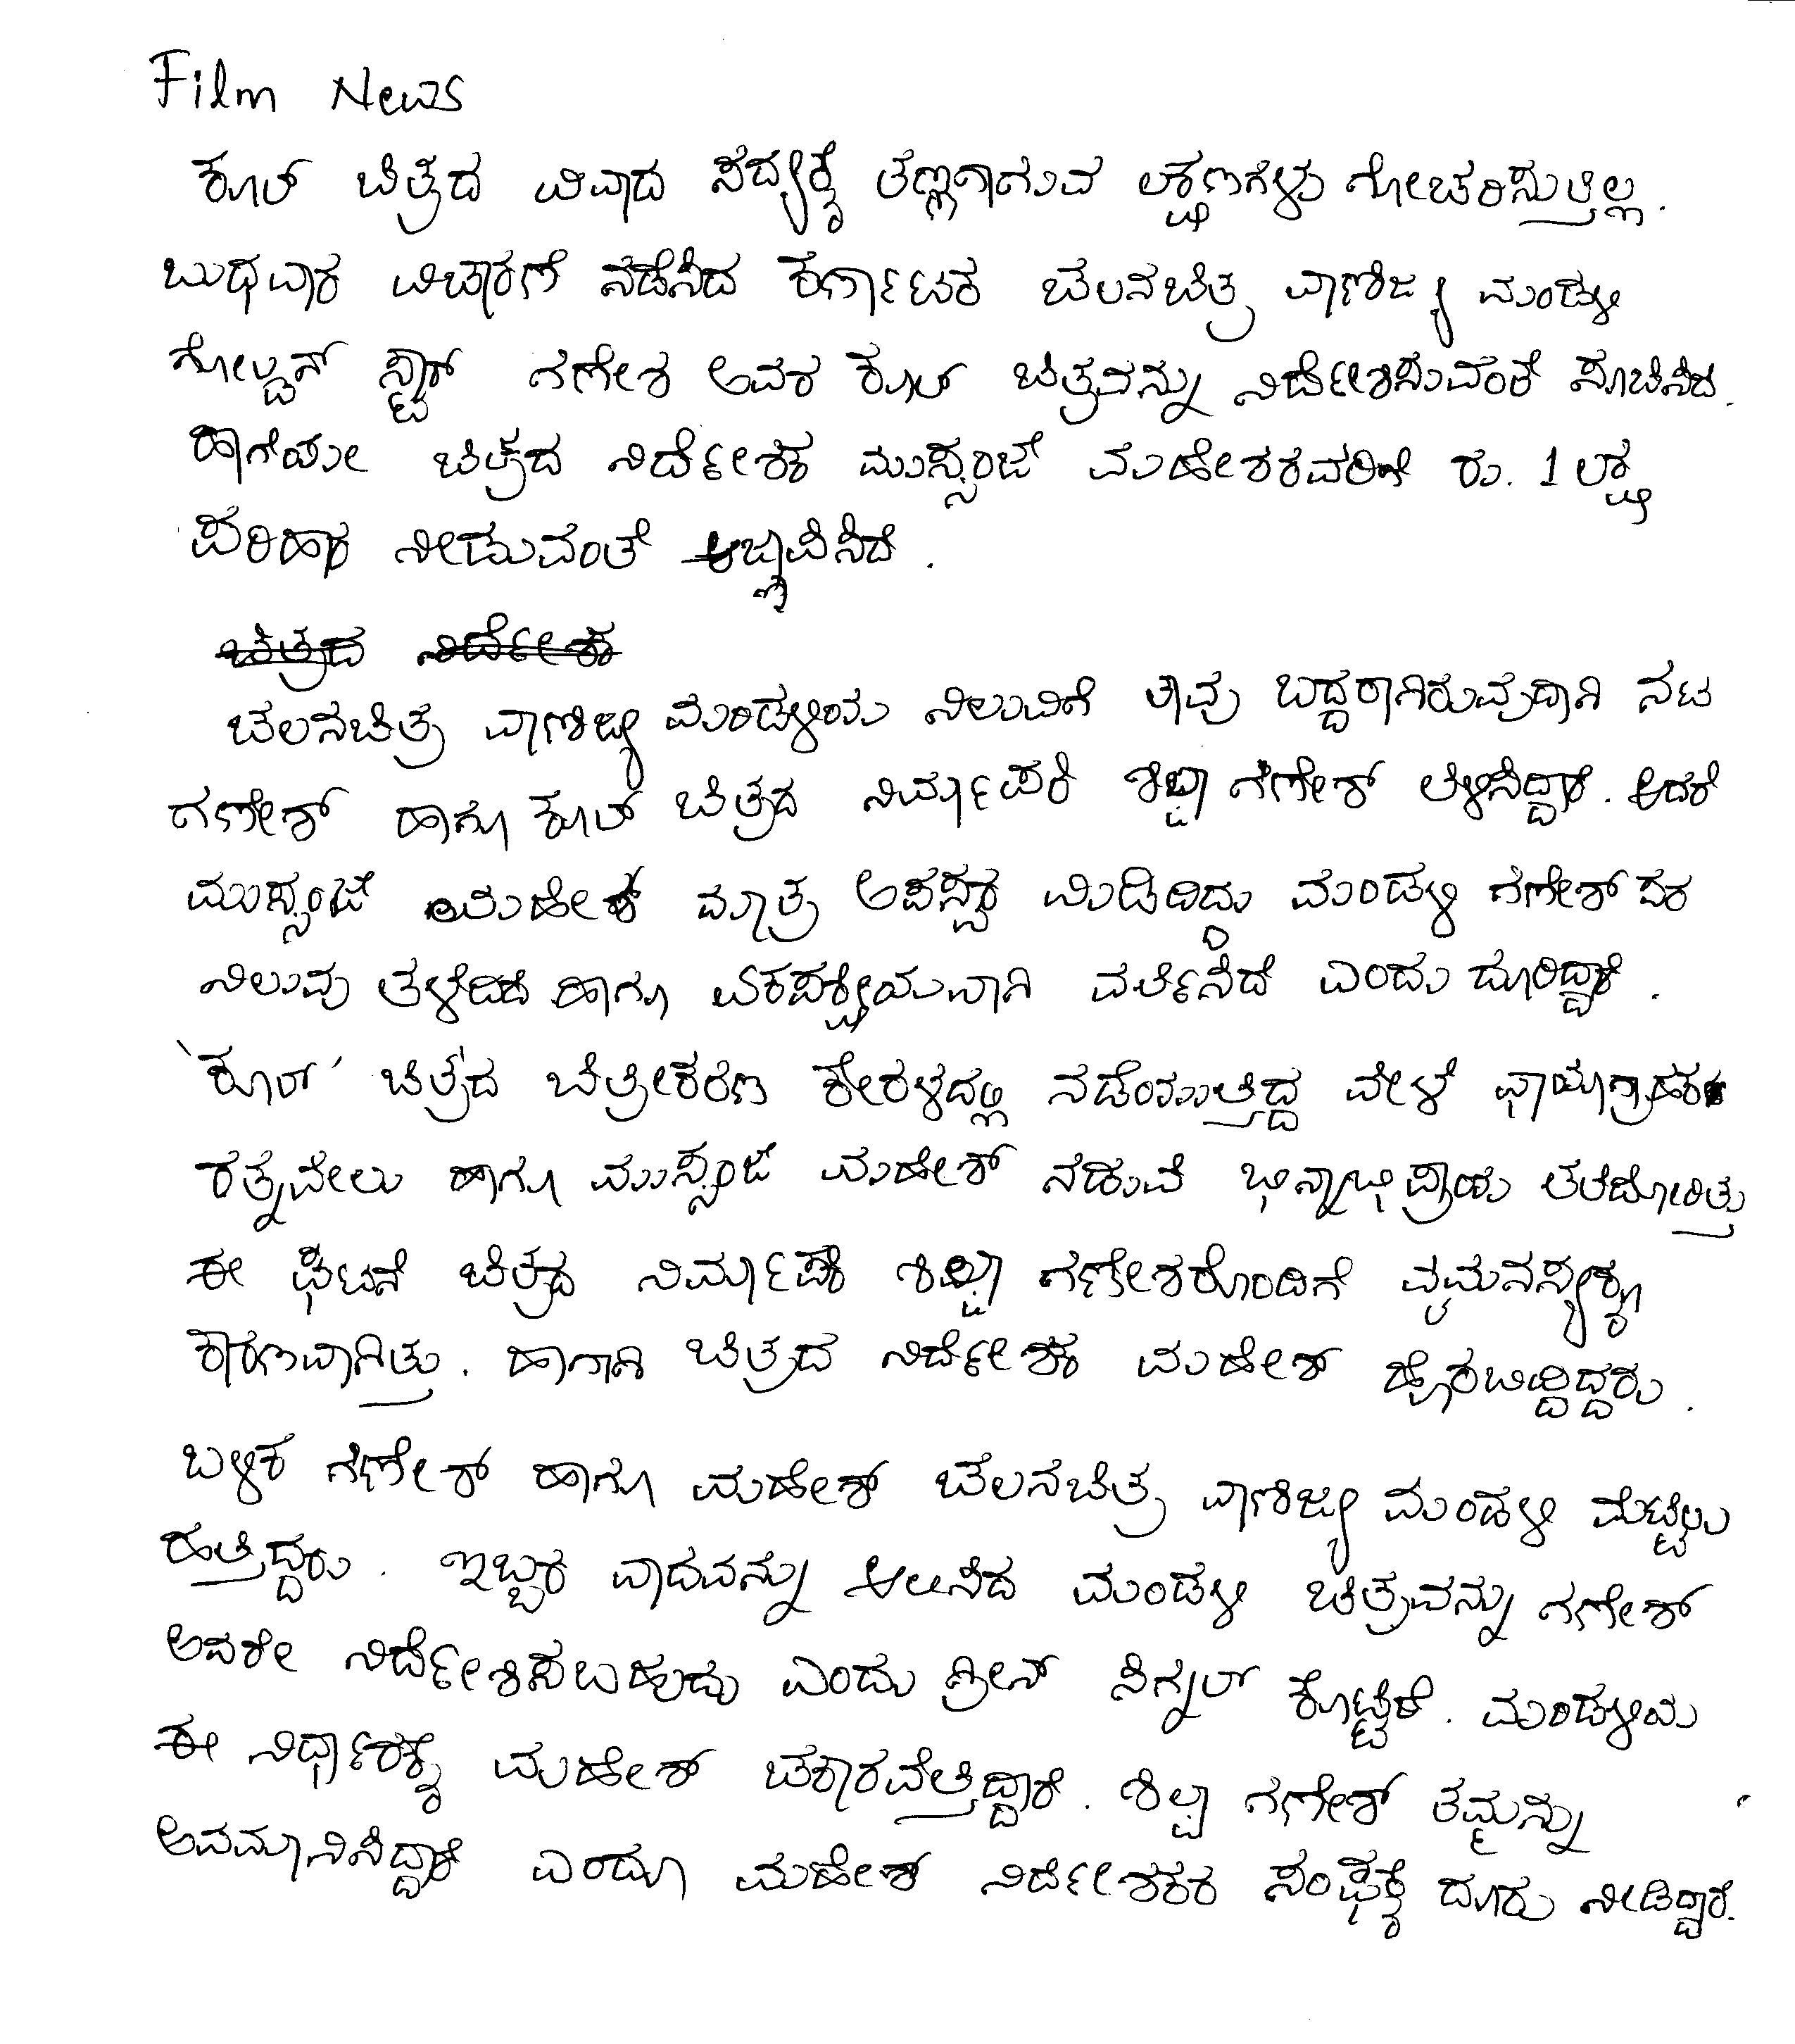 Film News
ಕೂಲ್ ಚಿತ್ರದ ವಿವಾದ ಸದ್ಯಕ್ಕೆ ತಣ್ಣಗಾಗುವ ಲಕ್ಷಣಗಳು ಗೋಚರಿಸುತ್ತಿಲ್ಲ.
ಬುಧವಾರ ವಿಚಾರಣೆ ನಡೆಸಿದ ಕರ್ನಾಟಕ ಚಲನಚಿತ್ರ ವಾಣಿಜ್ಯ ಮಂಡಳಿ
ಗೋಲ್ಡನ್ ಸ್ಟಾರ್ ಗಣೇಶ ಅವರ ಕೂಲ್ ಚಿತ್ರವನ್ನು ನಿರ್ದೇಶಿಸುವಂತೆ ಸೂಚಿಸಿದೆ.
ಹಾಗೆಯೇ ಚಿತ್ರದ ನಿರ್ದೇಶಕ ಮುಸ್ಸಂಜೆ ಮಹೇಶರವರಿಗೆ ರು. 1 ಲಕ್ಷ
ಪರಿಹಾರ ನೀಡುವಂತೆ ಆಜ್ಞಾಪಿಸಿದೆ.
ಚಿತ್ರದ ನಿರ್ದೇಶಕ
ಚಲನಚಿತ್ರ ವಾಣಿಜ್ಯ ಮಂಡಳಿಯ ನಿಲುವಿಗೆ ತಾವು ಬದ್ದರಾಗಿರುವುದಾಗಿ ನಟ
ಗಣೇಶ್ ಹಾಗೂ ಕೂಲ್ ಚಿತ್ರದ ನಿರ್ಮಾಪಕಿ ಶಿಲ್ಪಾ ಗಣೇಶ್ ತಿಳಿಸಿದ್ದಾರೆ. ಆದರೆ
ಮುಸ್ಸಂಜೆ ಮಹೇಶ್ ಮಾತ್ರ ಅಪಸ್ವರ ಮಿಡಿದಿದ್ದು ಮಂಡಳಿ ಗಣೇಶ್ ಪರ
ನಿಲುವು ತಳೆದಿದೆ ಹಾಗೂ ಏಕಪಕ್ಷೀಯವಾಗಿ ವರ್ತಿಸಿದೆ ಎಂದು ದೂರಿದ್ದಾರೆ.
'ಕೂಲ್' ಚಿತ್ರದ ಚಿತ್ರೀಕರಣ ಕೇರಳದಲ್ಲಿ ನಡೆಯುತ್ತಿದ್ದ ವೇಳೆ ಛಾಯಾಗ್ರಾಹಕ
ರತ್ನವೇಲು ಹಾಗೂ ಮುಸ್ಸಂಜೆ ಮಹೇಶ್ ನಡುವೆ ಭಿನ್ನಾಭಿಪ್ರಾಯ ತಲೆದೋರಿತ್ತು
ಈ ಘಟನೆ ಚಿತ್ರದ ನಿರ್ಮಾಪಕಿ ಶಿಲ್ಪಾ ಗಣೇಶರೊಂದಿಗೆ ವೈಮನಸ್ಯಕ್ಕೂ
ಕಾರಣವಾಗಿತ್ತು. ಹಾಗಾಗಿ ಚಿತ್ರದ ನಿರ್ದೇಶಕ ಮಹೇಶ್ ಹೊರಬಿದ್ದಿದ್ದರು.
ಬಳಿಕ ಗಣೇಶ್ ಹಾಗೂ ಮಹೇಶ್ ಚಲನಚಿತ್ರ ವಾಣಿಜ್ಯ ಮಂಡಳಿ ಮೆಟ್ಟಿಲು
ಹತ್ತಿದ್ದರು. ಇಬ್ಬರ ವಾದವನ್ನು ಆಲಿಸಿದ ಮಂಡಳಿ ಚಿತ್ರವನ್ನು ಗಣೇಶ್
ಅವರೇ ನಿರ್ದೇಶಿಸಬಹುದು ಎಂದು ಗ್ರೀನ್ ಸಿಗ್ನಲ್ ಕೊಟ್ಟಿದೆ. ಮಂಡಳಿಯ
ಈ ನಿರ್ಧಾರಕ್ಕೆ ಮಹೇಶ್ ಚಕಾರವೆತ್ತಿದ್ದಾರೆ. ಶಿಲ್ಪಾ ಗಣೇಶ್ ತಮ್ಮನ್ನು
ಅವಮಾನಿಸಿದ್ದಾರೆ ಎಂದೂ ಮಹೇಶ್ ನಿರ್ದೇಶಕರ ಸಂಘಕ್ಕೆ ದೂರು ನೀಡಿದ್ದಾರೆ.